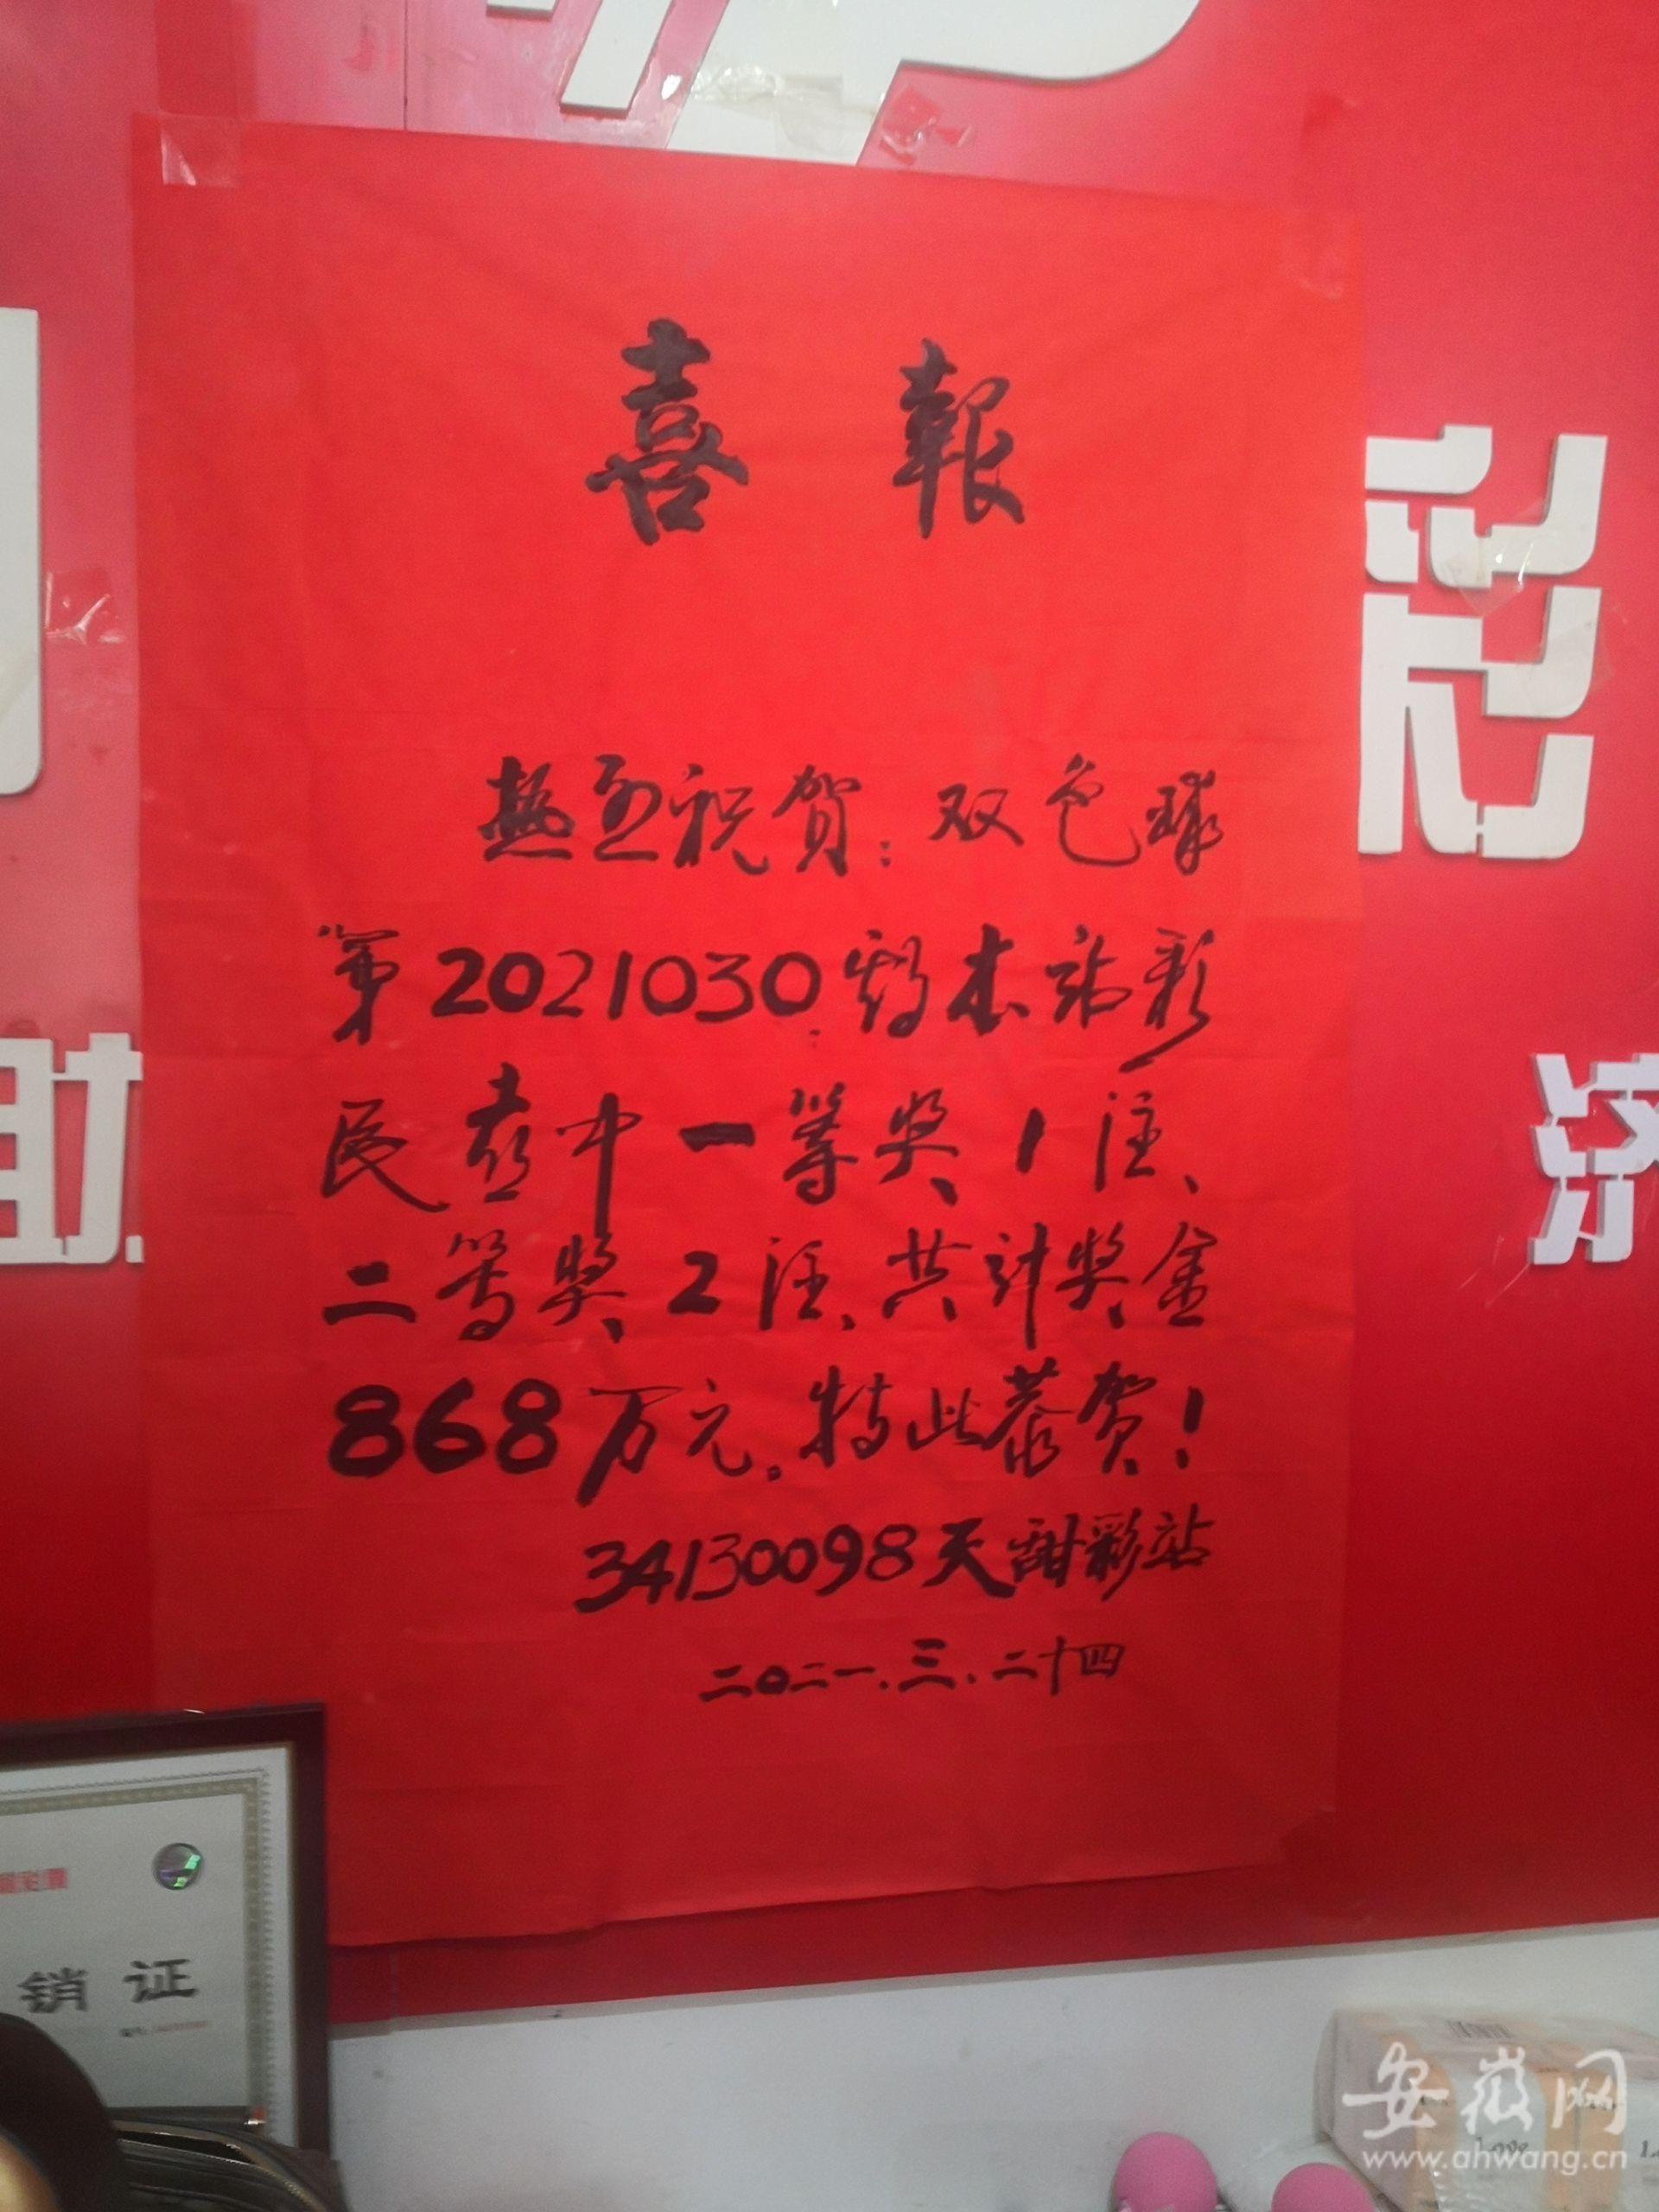 喜報
热烈祝贺：双色球
第2021030期本站彩
民喜中一等奖1注、
二等奖2注、共计奖金
868万元。特此恭贺！
34130098天甜彩站
二〇二一.三.二十四
彩
助
济
销 证
安徽网
www.ahwang.cn
Love